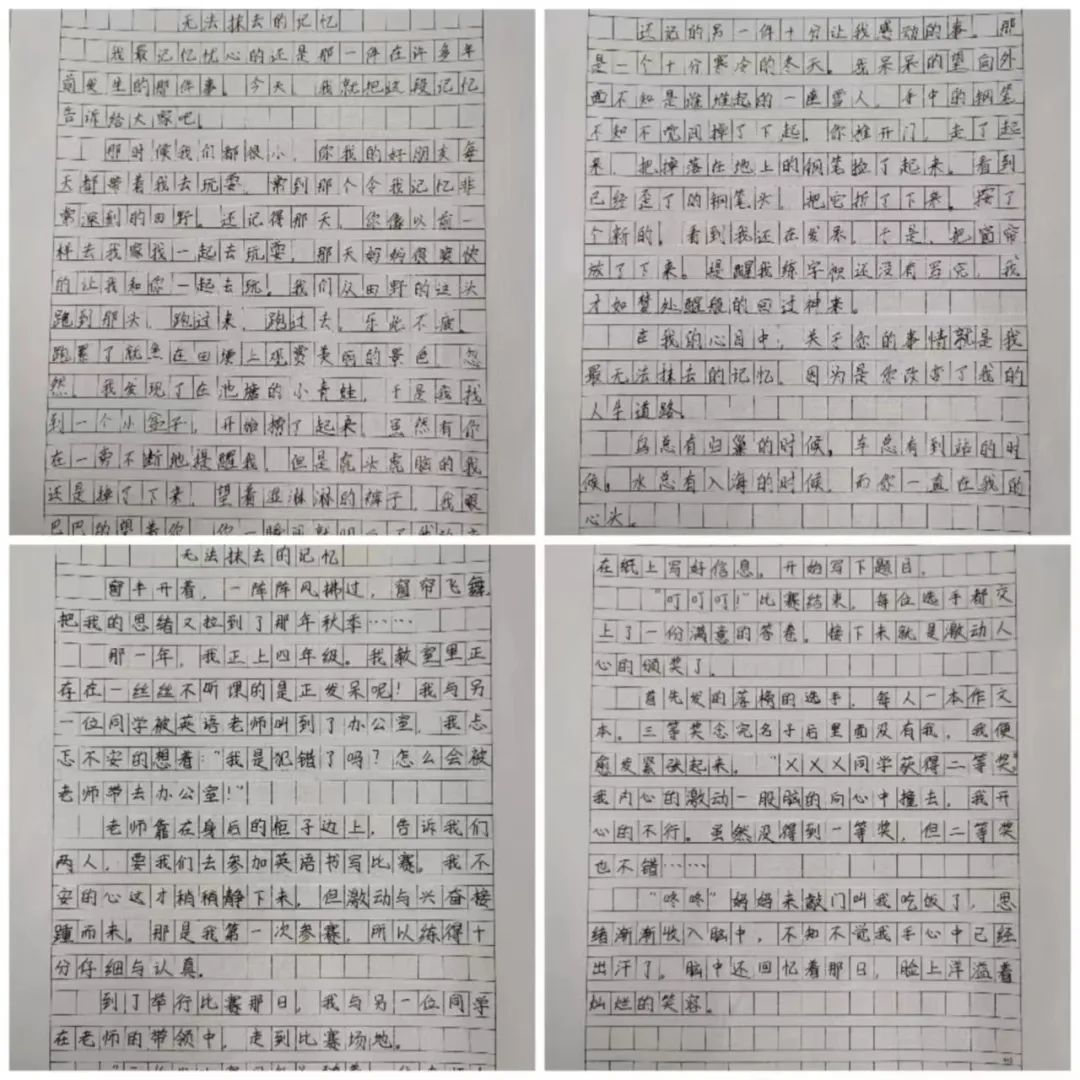 无法抹去的记忆
我最记忆忧心的还是那一件在许多年
前发生的那件事。今天,我就把这段记忆
告诉给大家吧。
那时候我们都很小,你我的好朋友每
天都带着我去玩耍,常到那个令我记忆非
常深刻的田野。还记得那天,你像以前一
样去我家找我一起去玩耍,那天妈妈很爽快
的让我和你一起去玩。我们从田野的这头
跑到那头,跑过来,跑过去。乐此不疲。
跑累了就坐在田埂上观赏美丽的景色,忽
然,我发现了在池塘的小青蛙,于是我找
到一个小盒子,开始捞了起来,虽然有你
在一旁不断地提醒我,但是虎头虎脑的我
还是掉了下来,望着湿淋淋的裤子,我眼
巴巴的望着你,你一瞬间就明
还记的另一件十分让我感动的事。那
是一个十分寒冷的冬天。我呆呆的望向外
面不知是谁堆起的一座雪人,手中的钢笔
不知不觉间掉了下起,你推开门,走了起
来,把掉落在地上的钢笔捡了起来。看到
已经歪了的钢笔头,把它折了下来。按了
个新的,看到我还在发呆,于是,把窗帘
放了下来。提醒我练字帖还没有写完,我
才如梦处醒般的回过神来。
在我的心目中,关于你的事情就是我
最无法抹去的记忆,因为是你改变了我的
人生道路。
鸟总有归巢的时候,车总有到站的时
候,水总有入海的时候,而你一直在我的
心头。
无法抹去的记忆
窗半开着,一阵阵风拂过,窗帘飞舞,
把我的思绪又拉到了那年秋季……
那一年,我正上四年级。我教室里正
存在一丝丝不听课的是正发呆呢!我与另
一位同学被英语老师叫到了办公室,我忐
忑不安的想着:“我是犯错了吗?怎么会被
老师带去办公室!”
老师靠在身后的柜子边上,告诉我们
两人,要我们去参加英语书写比赛。我不
安的心这才稍稍静下来,但激动与兴奋接
踵而来。那是我第一次参赛,所以练得十
分仔细与认真。
到了举行比赛那日,我与另一位同学
在老师的带领中,走到比赛场地。
在纸上写好信息,开始写下题目。
“叮叮叮!”比赛结束,每位选手都交
上了一份满意的答卷。接下来就是激动人
心的颁奖了。
首先发的落榜的选手,每人一本作文
本。三等奖念完名子后里面没有我,我便
愈发紧张起来。“XXX同学获得二等奖”
我内心的激动一股脑的向心中撞去,我开
心的不行。虽然没得到一等奖,但二等奖
也不错……
“咚咚”妈妈来敲门叫我吃饭了,思
绪渐渐收入脑中,不知不觉我手心中已经
出汗了。脑中还回忆着那日,脸上洋溢着
灿烂的笑容。